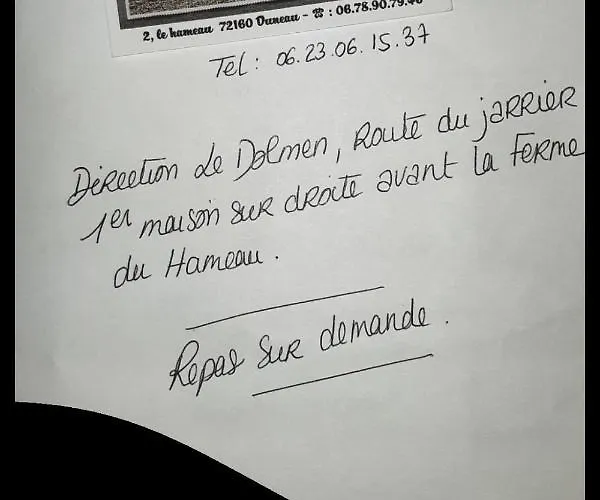 2, le hameau 72160 Duneau - ☎ : 06.78.90.79.40
Tel : 06.23.06.15.37
Direction le Dolmen, Route du jarrier
1er maison sur droite avant la Ferme
du Hameau.
Repas sur demande.